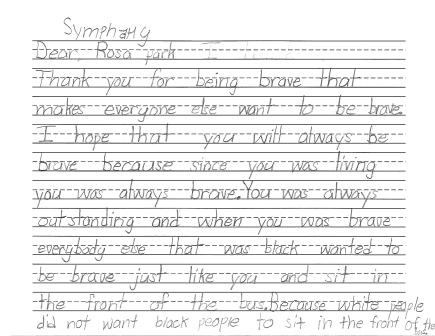 Symphony
Dear, Rosa park I
Thank you for being brave that
makes everyone else want to be brave.
I hope that you will always be
brave because since you was living
you was always brave. You was always
outstanding and when you was brave
everybody else that was black wanted to
be brave just like you and sit in
the front of the bus. Because white people
did not want black people to sit in the front of the